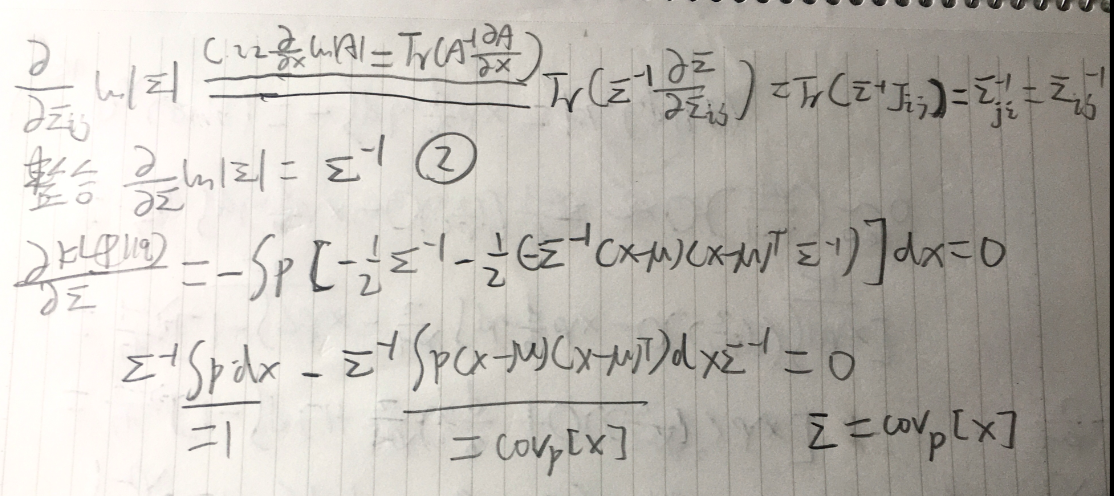 ∂/∂Σij ln|Σ| (C.22 ∂/∂x ln|A| = Tr(A⁻¹ ∂A/∂x)) = Tr(Σ⁻¹ ∂Σ/∂Σij) = Tr(Σ⁻¹ Jij) = Σji⁻¹ = Σij⁻¹
整合 ∂/∂Σ ln|Σ| = Σ⁻¹ ②
∂KL(p||q)/∂Σ = -∫p[-1/2 Σ⁻¹ - 1/2(-Σ⁻¹(x-μ)(x-μ)ᵀ Σ⁻¹)]dx = 0
Σ⁻¹∫p dx - Σ⁻¹∫p(x-μ)(x-μ)ᵀ)dx Σ⁻¹ = 0
=1 = covp[x] Σ = covp[x]